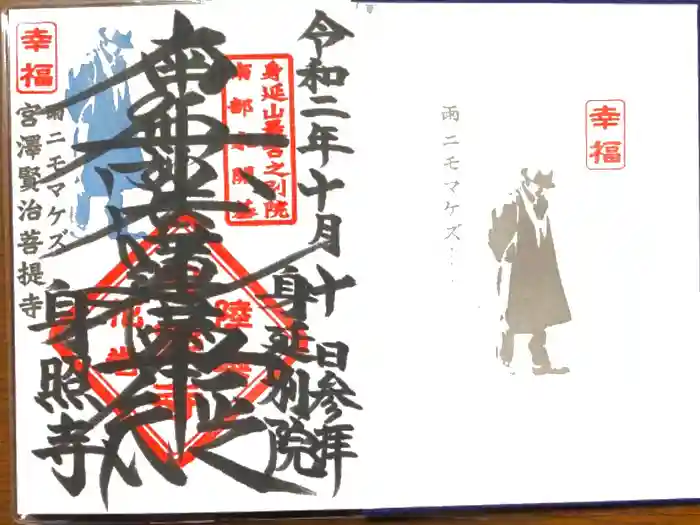 令和二年十月十日参拝
身延別院
身延山最古之別院
南部家開基
南無妙法蓮華経
陸奥
花巻
身照寺
雨ニモマケズ
宮澤賢治菩提寺
幸福
幸福
雨ニモマケズ…